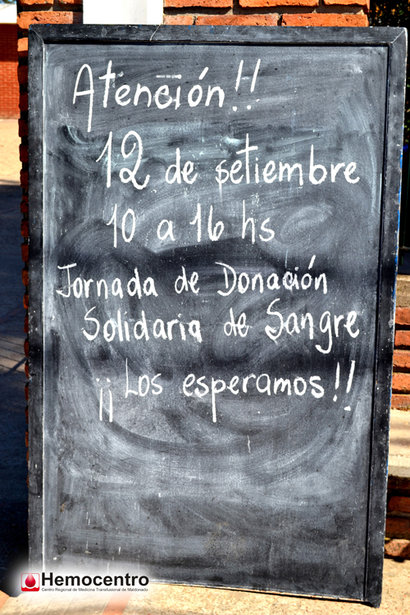 Atención!!
12 de setiembre
10 a 16 hs
Jornada de Donación
Solidaria de Sangre
¡¡ Los esperamos!!
Hemocentro
Centro Regional de Medicina Transfusional de Maldonado